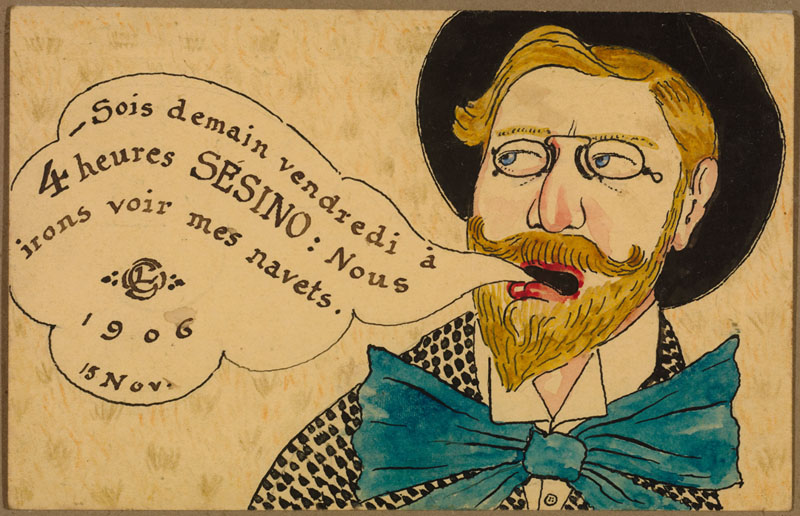 – Sois demain vendredi à
4 heures SÉSINO : Nous
irons voir mes navets.
1906
15 Nov.